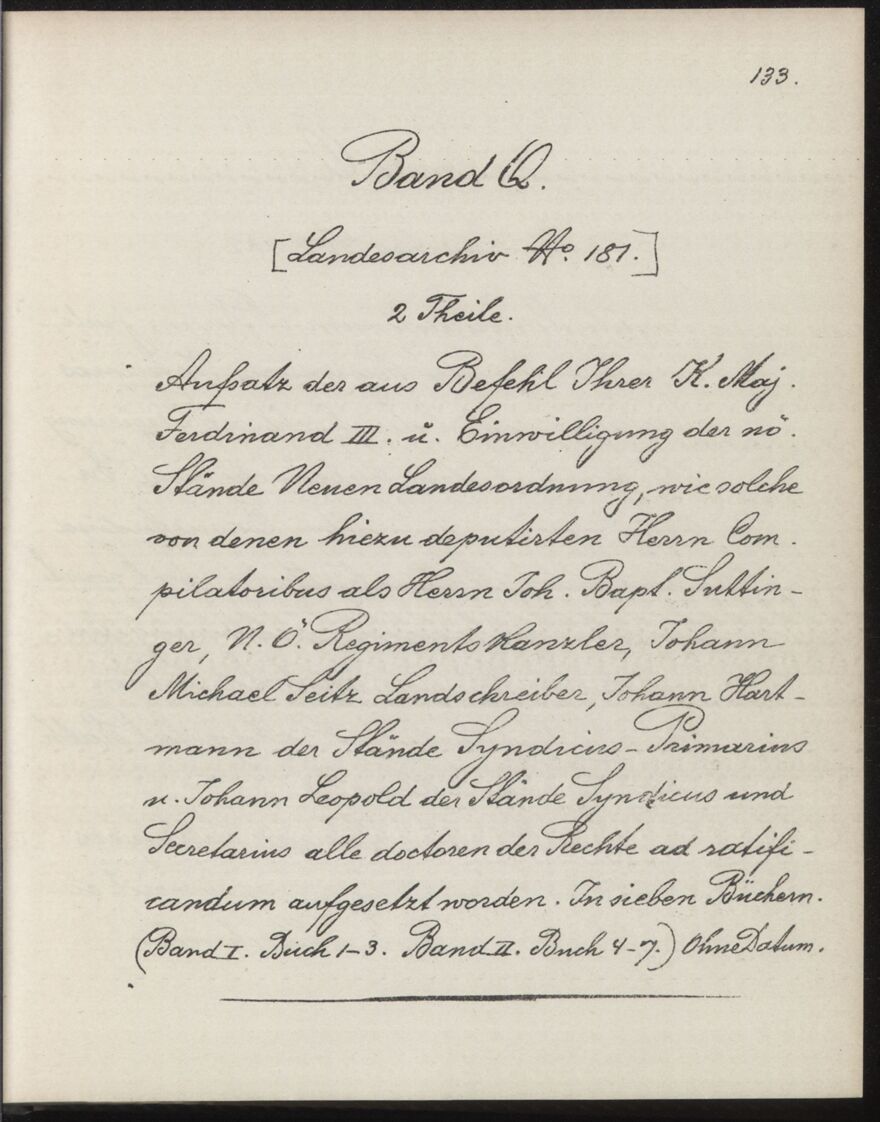 133.
Band Q.
[Landesarchiv No. 181.]
2 Theile.
Aufsatz der aus Befehl Ihrer K. Maj.
Ferdinand III. u. Einwilligung der nö.
Stände Neuen Landesordnung, wie solche
von denen hiezu deputirten Herrn Com.
pilatoribus als Herrn Joh. Bapt. Suttin-
ger, N. Ö. Regiments Kanzler, Johann
Michael Seitz Landschreiber, Johann Hart-
mann der Stände Syndicus-Primarius
u. Johann Leopold der Stände Syndicus und
Secretarius alle doctoren der Rechte ad ratifi-
candum aufgesetzt worden. In sieben Büchern.
(Band I. Buch 1-3. Band II. Buch 4-7.) Ohne Datum.